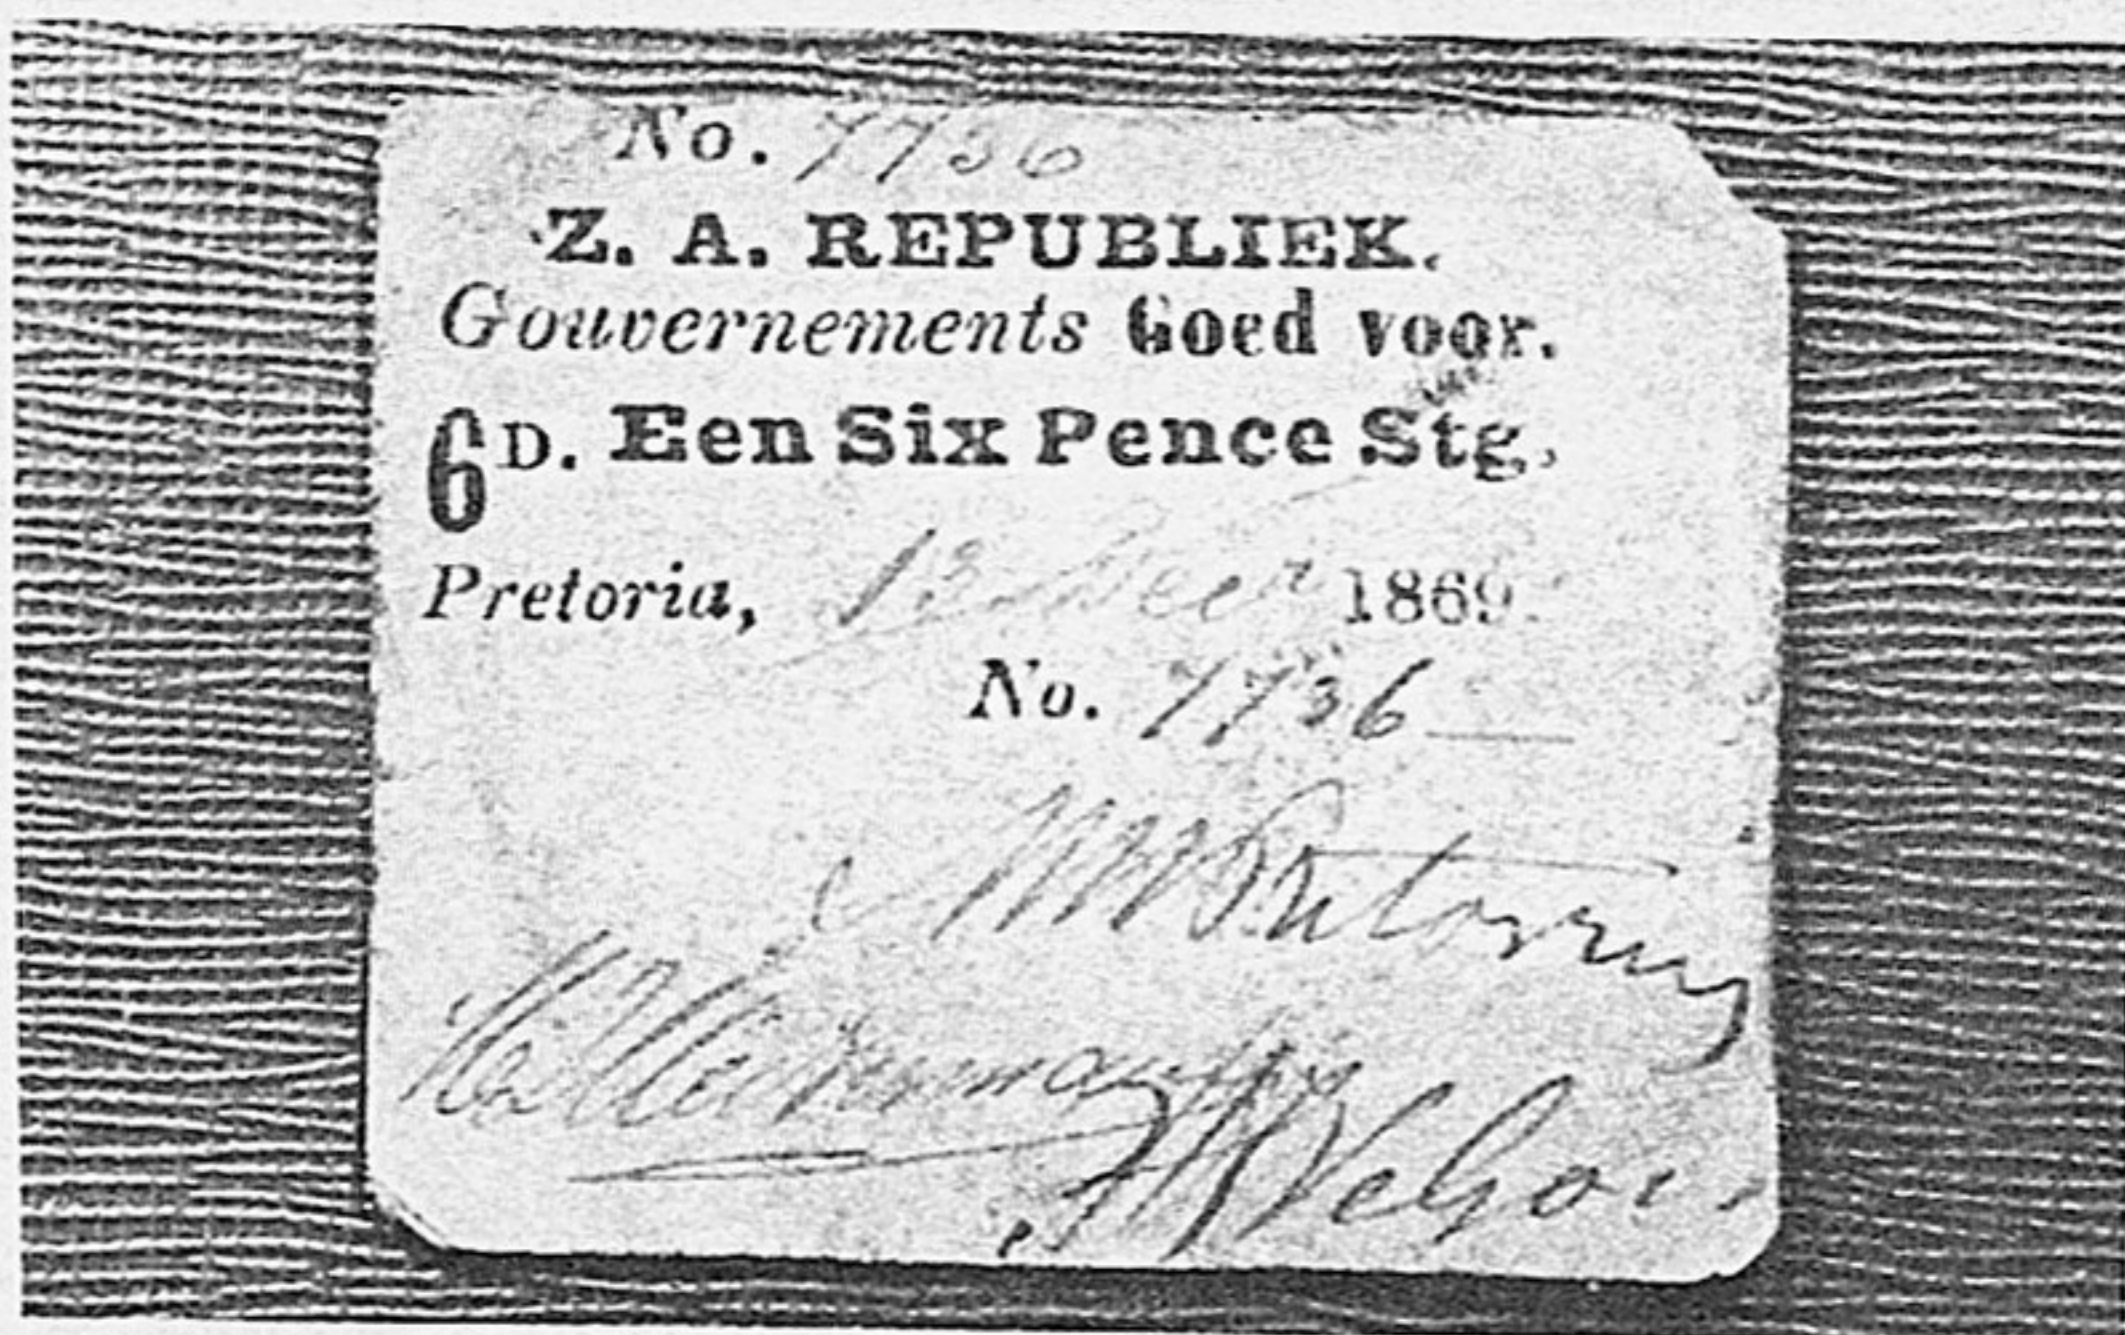 No. 7736
Z. A. REPUBLIEK.
Gouvernements Goed voor.
6D. Een Six Pence Stg,
Pretoria, 13 Decr 1869.
No. 7736
MWPretorius